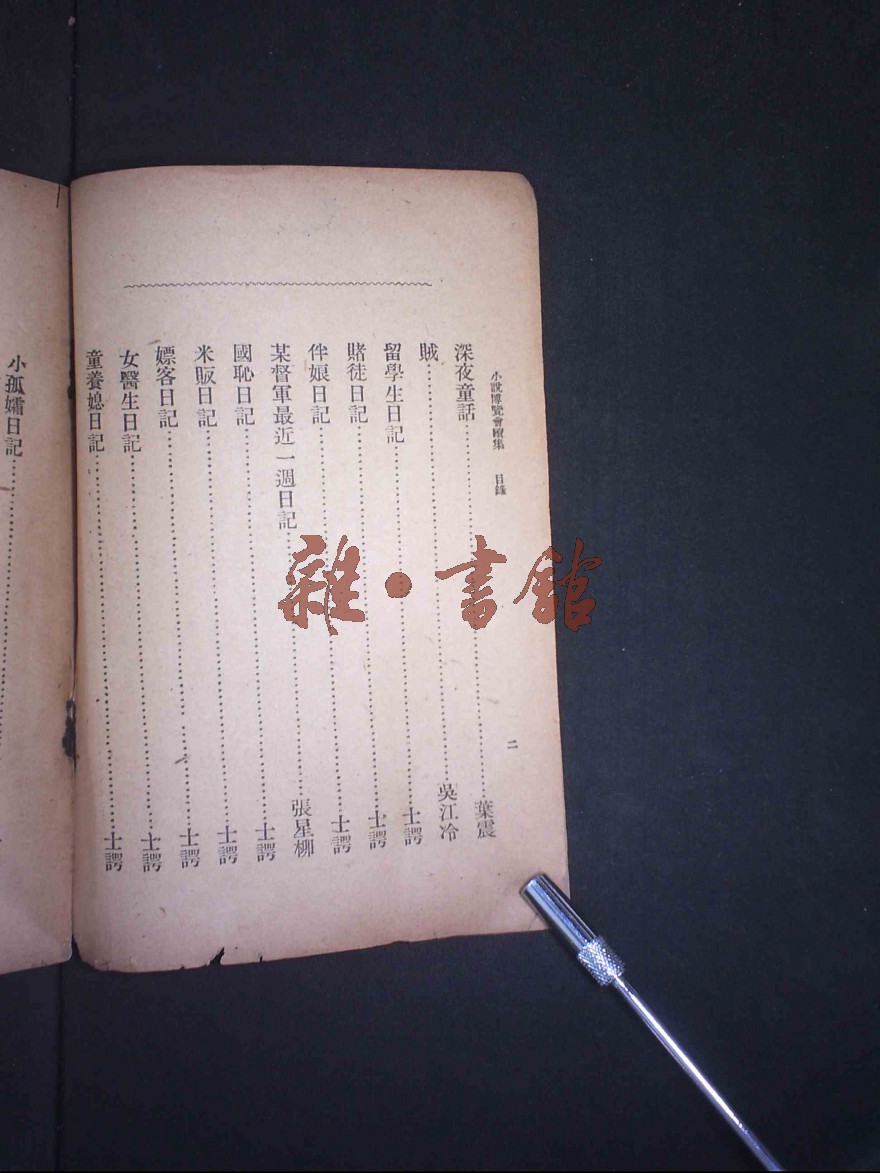 小說博覽會續集 目錄 二
深夜童話……葉震
賊……吳江冷
留學生日記……士諤
賭徒日記……士諤
伴娘日記……士諤
某督軍最近一週日記……張星柳
國恥日記……士諤
米販日記……士諤
嫖客日記……士諤
女醫生日記……士諤
童養媳日記……士諤
小孤孀日記……
雜·書館